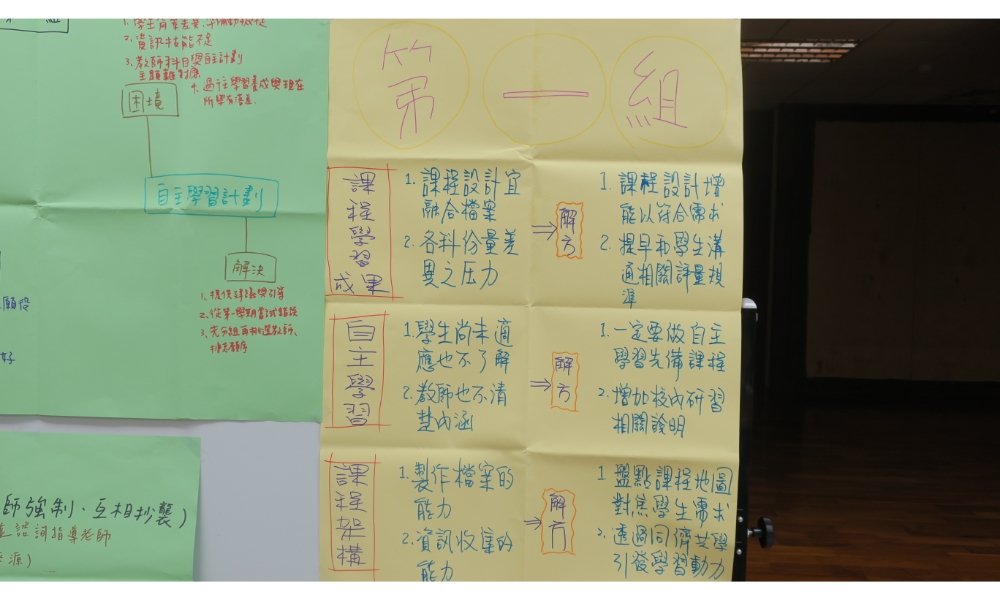 組
2. 資訊技能不足
3. 教師科目與自主計劃
主題難對應
4. 過往學習養成與現在
所學有落差
困境
自主學習計劃
解決
1. 提供建議與引導
2. 從第一學期嘗試錯誤
願役
好
師強制、互相抄襲)
諮詢指導老師
源)
第一組
課程學習成果
1. 課程設計宜
融合檔案
2. 各科份量差
異之壓力
⇒
解方
1. 課程設計增
能以符合需求
2. 提早和學生溝
通相關評量規
準
自主學習
1. 學生尚未適
應也不了解
2. 教師也不清
楚內涵
⇒
解方
1. 一定要做自主
學習先備課程
2. 增加校內研習
相關說明
課程架構
1. 製作檔案的
能力
2. 資訊收集的
能力
⇒
解方
1 盤點課程地圖
對焦學生需求
2. 透過同儕共學
引發學習動力